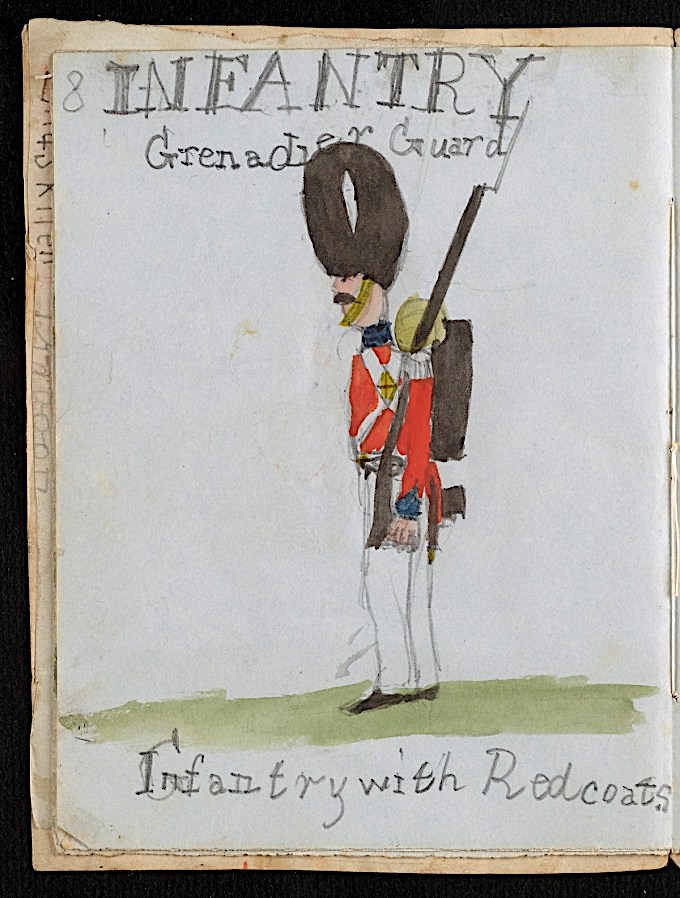 8 INFANTRY
Grenadier Guard
Infantry with Redcoats